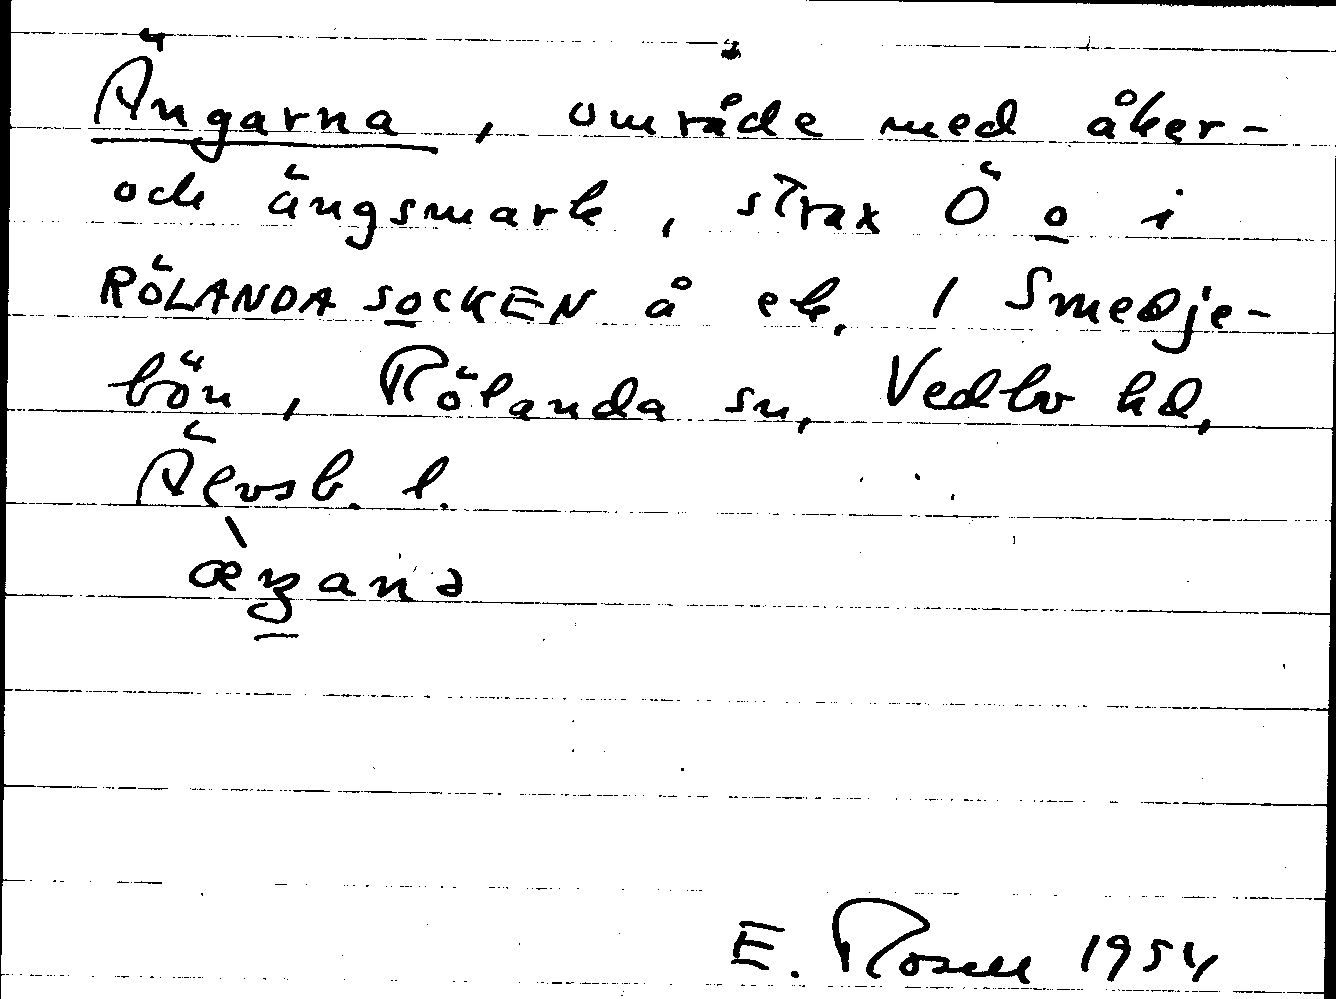 Ängarna, område med åker-
och ängsmark, strax Ö o i
RÖLANDA SOCKEN å ek. 1 Smedje-
bön, Rölanda sn, Vedbo hd,
Älvsb. l.
æ̀ŋana
E. Rosell 1954